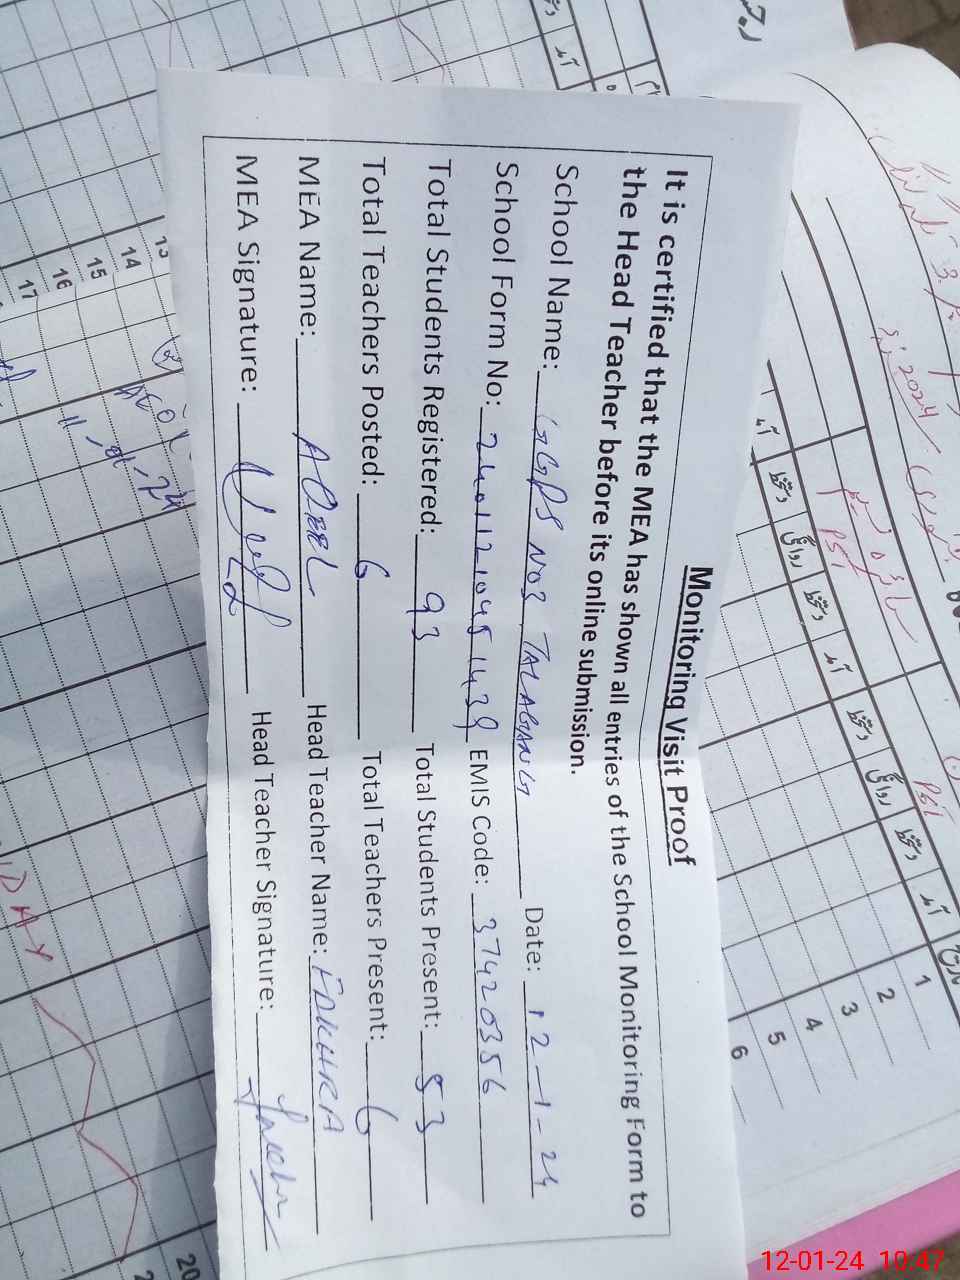 Monitoring Visit Proof
It is certified that the MEA has shown all entries of the School Monitoring Form to
the Head Teacher before its online submission.
School Name: GGPS NO3 TALAGANG Date: 12-1-24
School Form No: EMIS Code: 37420356
Total Students Registered: 93 Total Students Present: 83
Total Teachers Posted: 6 Total Teachers Present: 6
MEA Name: Head Teacher Name: FAKHRA
MEA Signature: Head Teacher Signature:
13
14
15
16
17
1
2
3
4
5
6
20
2024
PST
PST
آمد
دستخط
روانگی
دستخط
آمد
دستخط
روانگی
دستخط
آمد
تاریخ
DAY
12-01-24 10:47